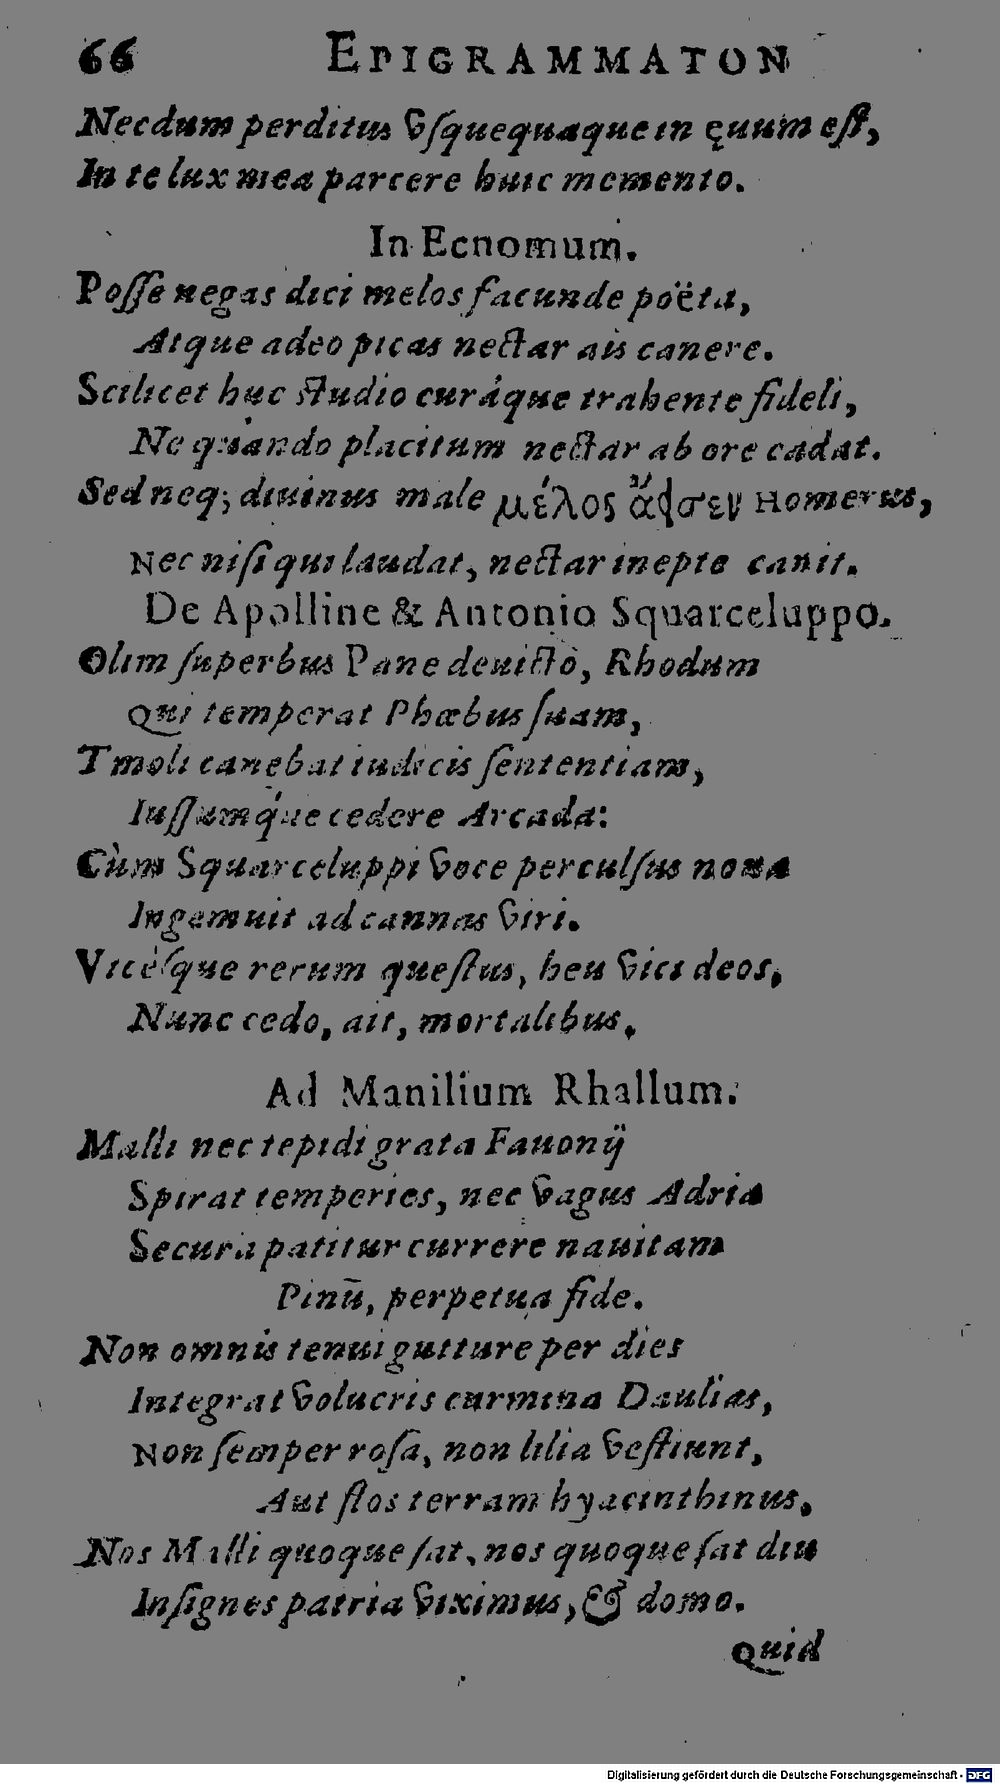 66 EPIGRAMMATON
Necdum perditus vſquequaque in ęuum eſt,
In te lux mea parcere huic memento.
In Ecnomum.
Poſſe negas dici melos facunde poëta,
Atque adeo picas nectar ais canere.
Scilicet huc ſtudio curáque trahente fideli,
Ne quando placitum nectar ab ore cadat.
Sed neq; diuinus male μέλος ἄφσεν Homerus,
Nec niſi qui laudat, nectar inepte canit.
De Apolline & Antonio Squarceluppo.
Olim ſuperbus Pane deuicto, Rhodum
Qui temperat Phœbus ſuam,
Tmoli canebat iudicis ſententiam,
Iuſſumq́ue cedere Arcada:
Cùm Squarceluppi voce perculſus noua
Ingemuit ad cannas viri.
Vicéſque rerum queſtus, heu vici deos,
Nunc cedo, ait, mortalibus.
Ad Manilium Rhallum.
Malli nec tepidi grata Fauonij
Spirat temperies, nec vagus Adria
Secura patitur currere nauitam
Pinū, perpetua fide.
Non omnis tenui gutture per dies
Integrat volucris carmina Daulias,
Non ſemper roſa, non lilia veſtiunt,
Aut flos terram hyacinthinus.
Nos Malli quoque ſat, nos quoque ſat diu
Inſignes patria viximus, & domo.
Quid
Digitalisierung gefördert durch die Deutsche Forschungsgemeinschaft - DFG